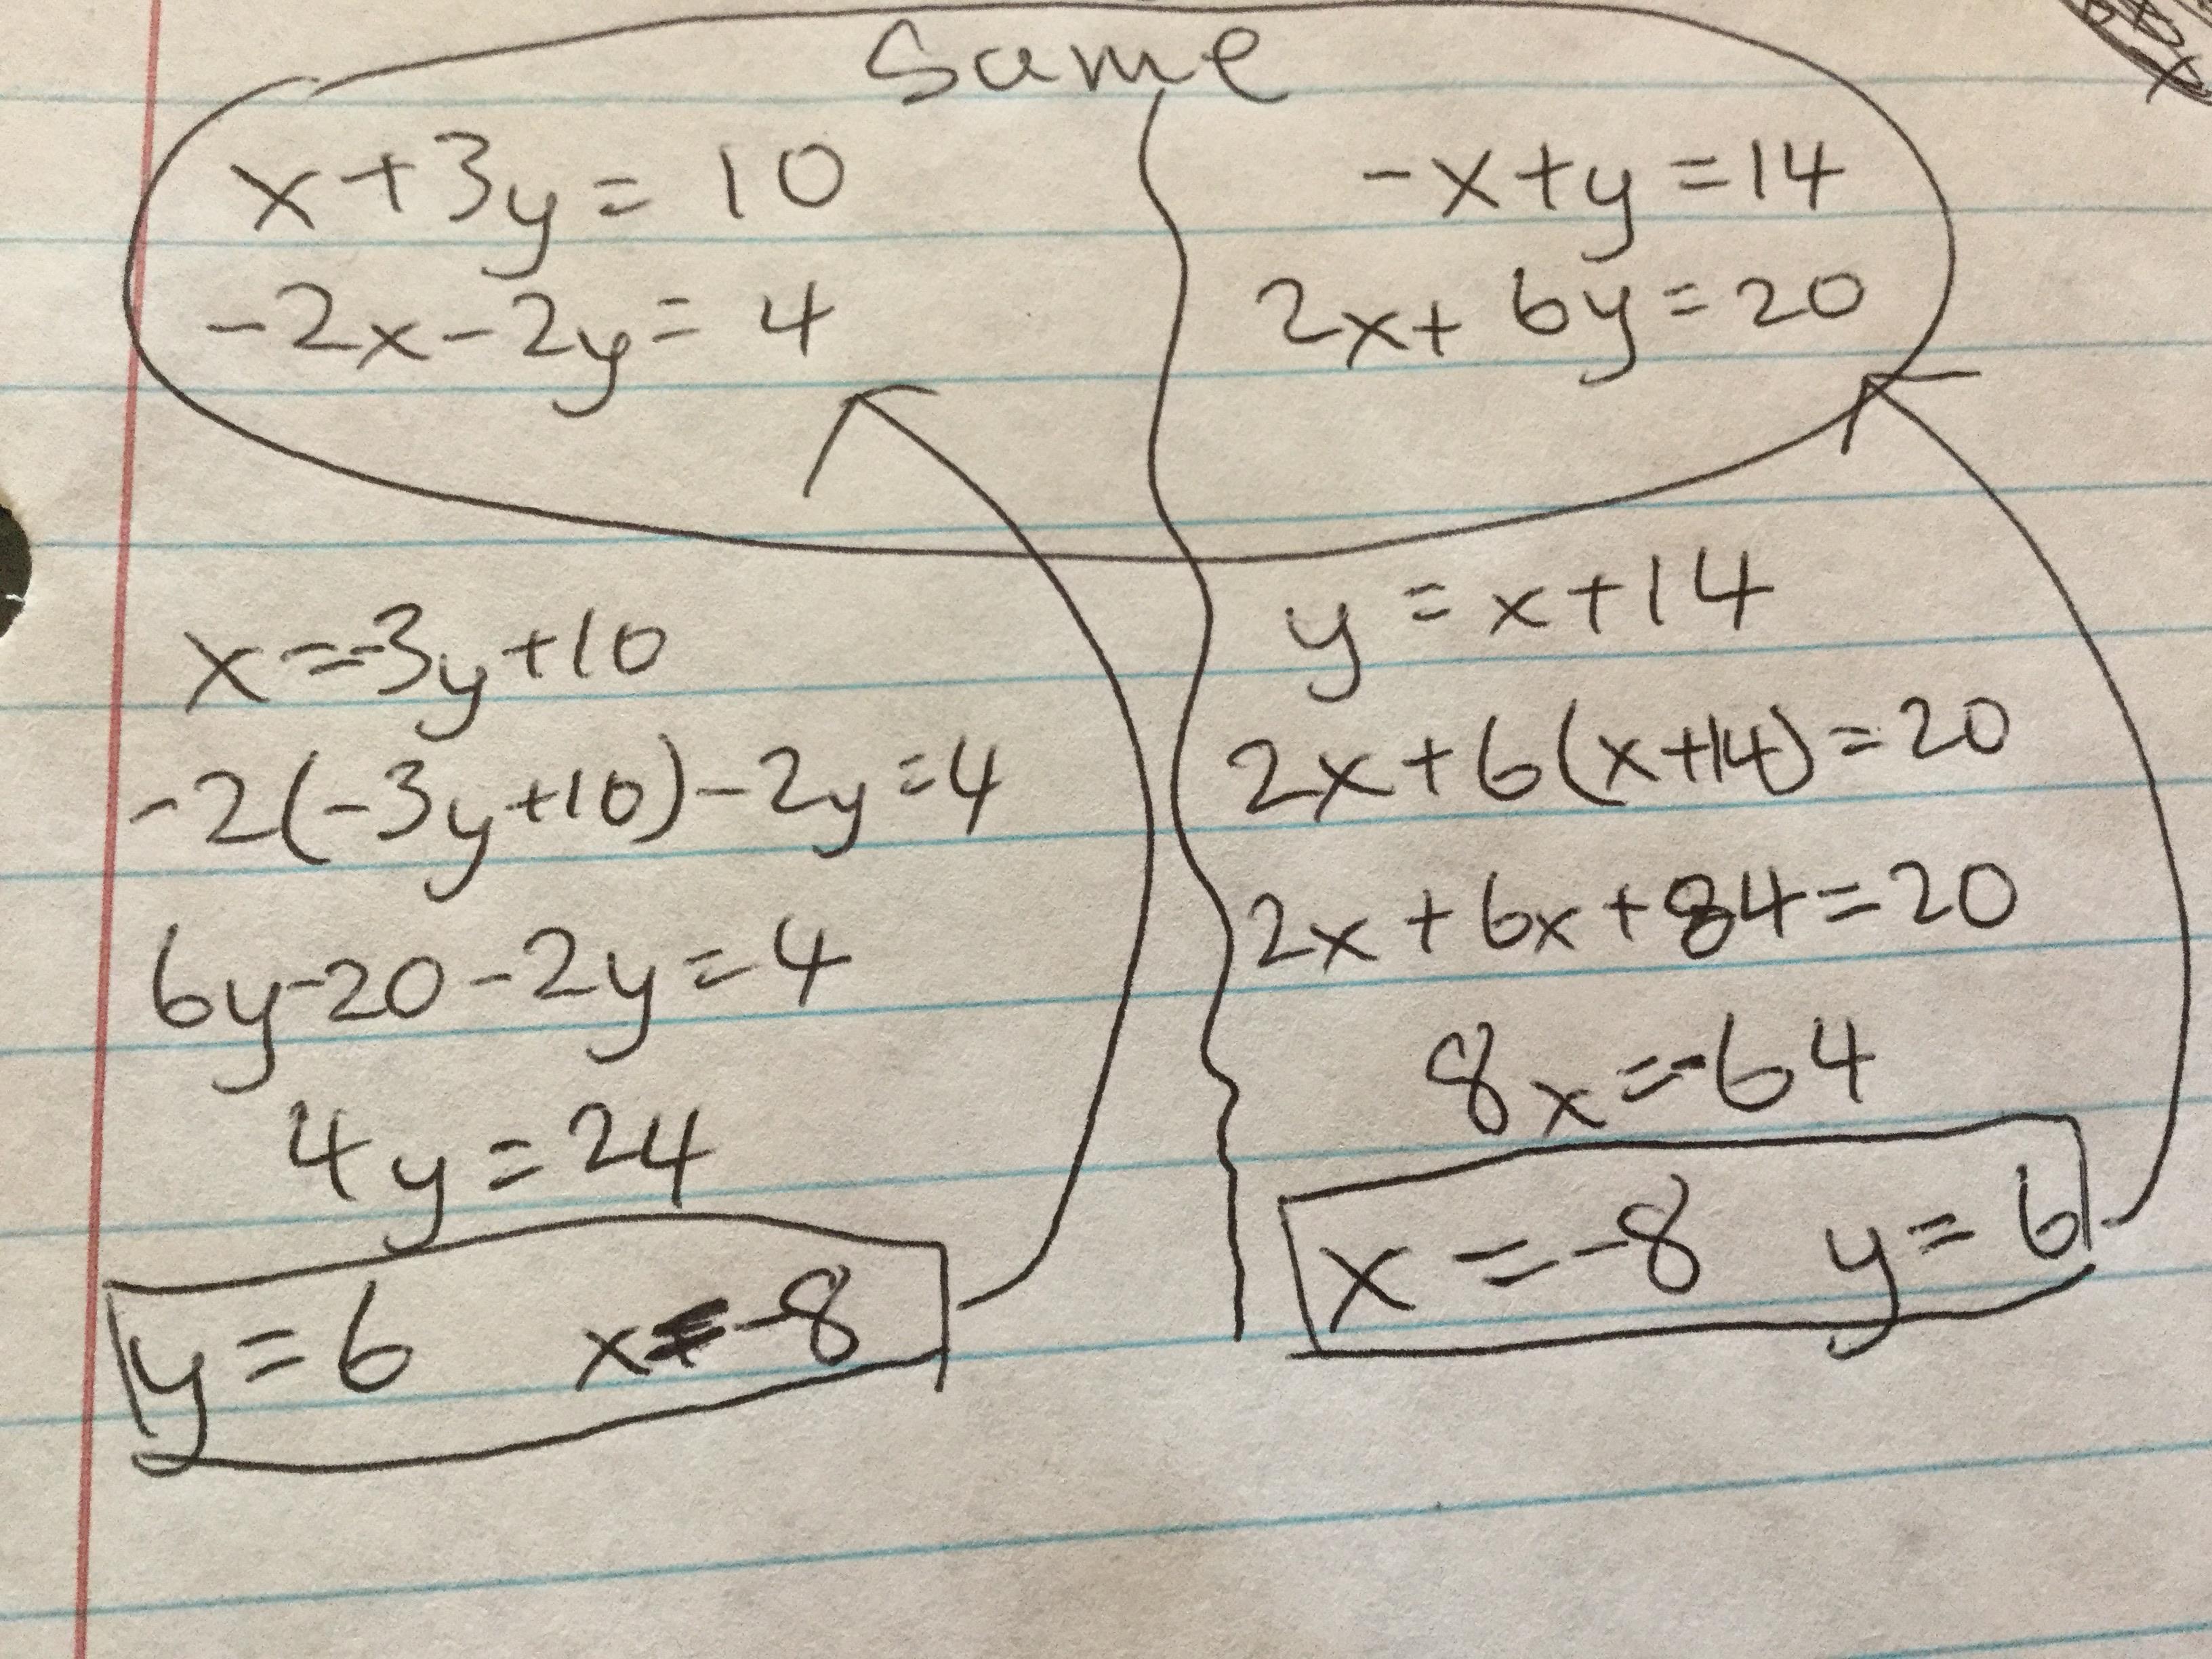 same
x+3y=10
-2x-2y=4
x=-3y+10
-2(-3y+10)-2y=4
6y-20-2y=4
4y=24
y=6 x=-8
-x+y=14
2x+6y=20
y=x+14
2x+6(x+14)=20
2x+6x+84=20
8x=-64
x=-8 y=6